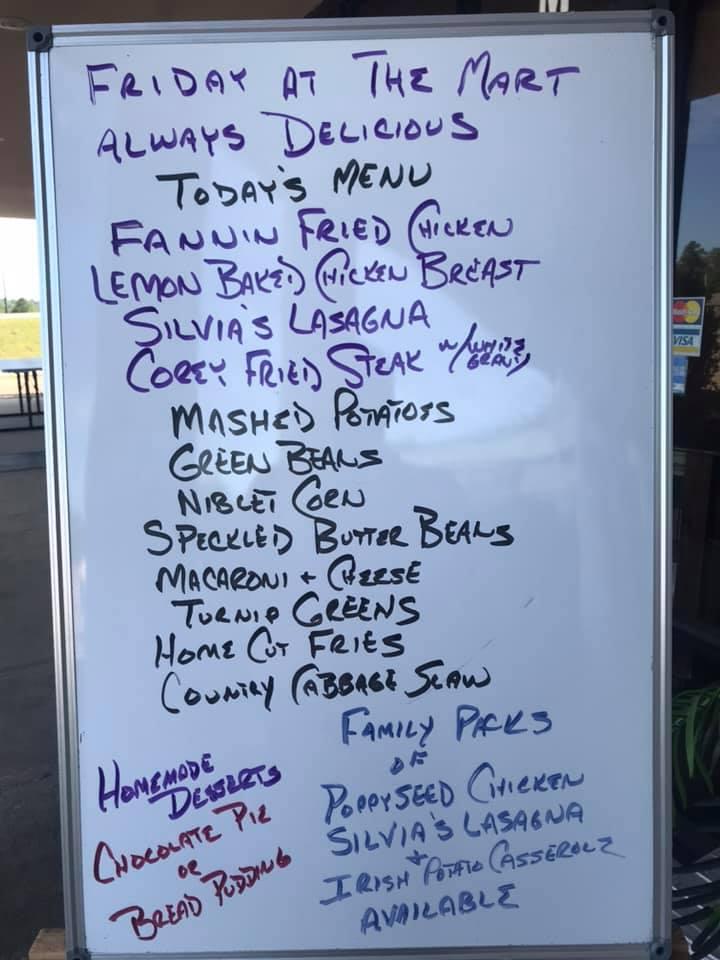 FRIDAY AT THE MART
ALWAYS DELICIOUS
TODAY'S MENU
FANNIN FRIED CHICKEN
LEMON BAKED CHICKEN BREAST
SILVIA'S LASAGNA
COREY FRIED STEAK W/WHITE GRAVY
MASHED POTATOES
GREEN BEANS
NIBLET CORN
SPECKLED BUTTER BEANS
MACARONI + CHEESE
TURNIP GREENS
HOME CUT FRIES
COUNTRY CABBAGE SLAW
HOMEMADE
DESSERTS
CHOCOLATE PIE
OR
BREAD PUDDING
FAMILY PACKS
OF
POPPYSEED CHICKEN
SILVIA'S LASAGNA
+
IRISH POTATO CASSEROLE
AVAILABLE
M
VISA